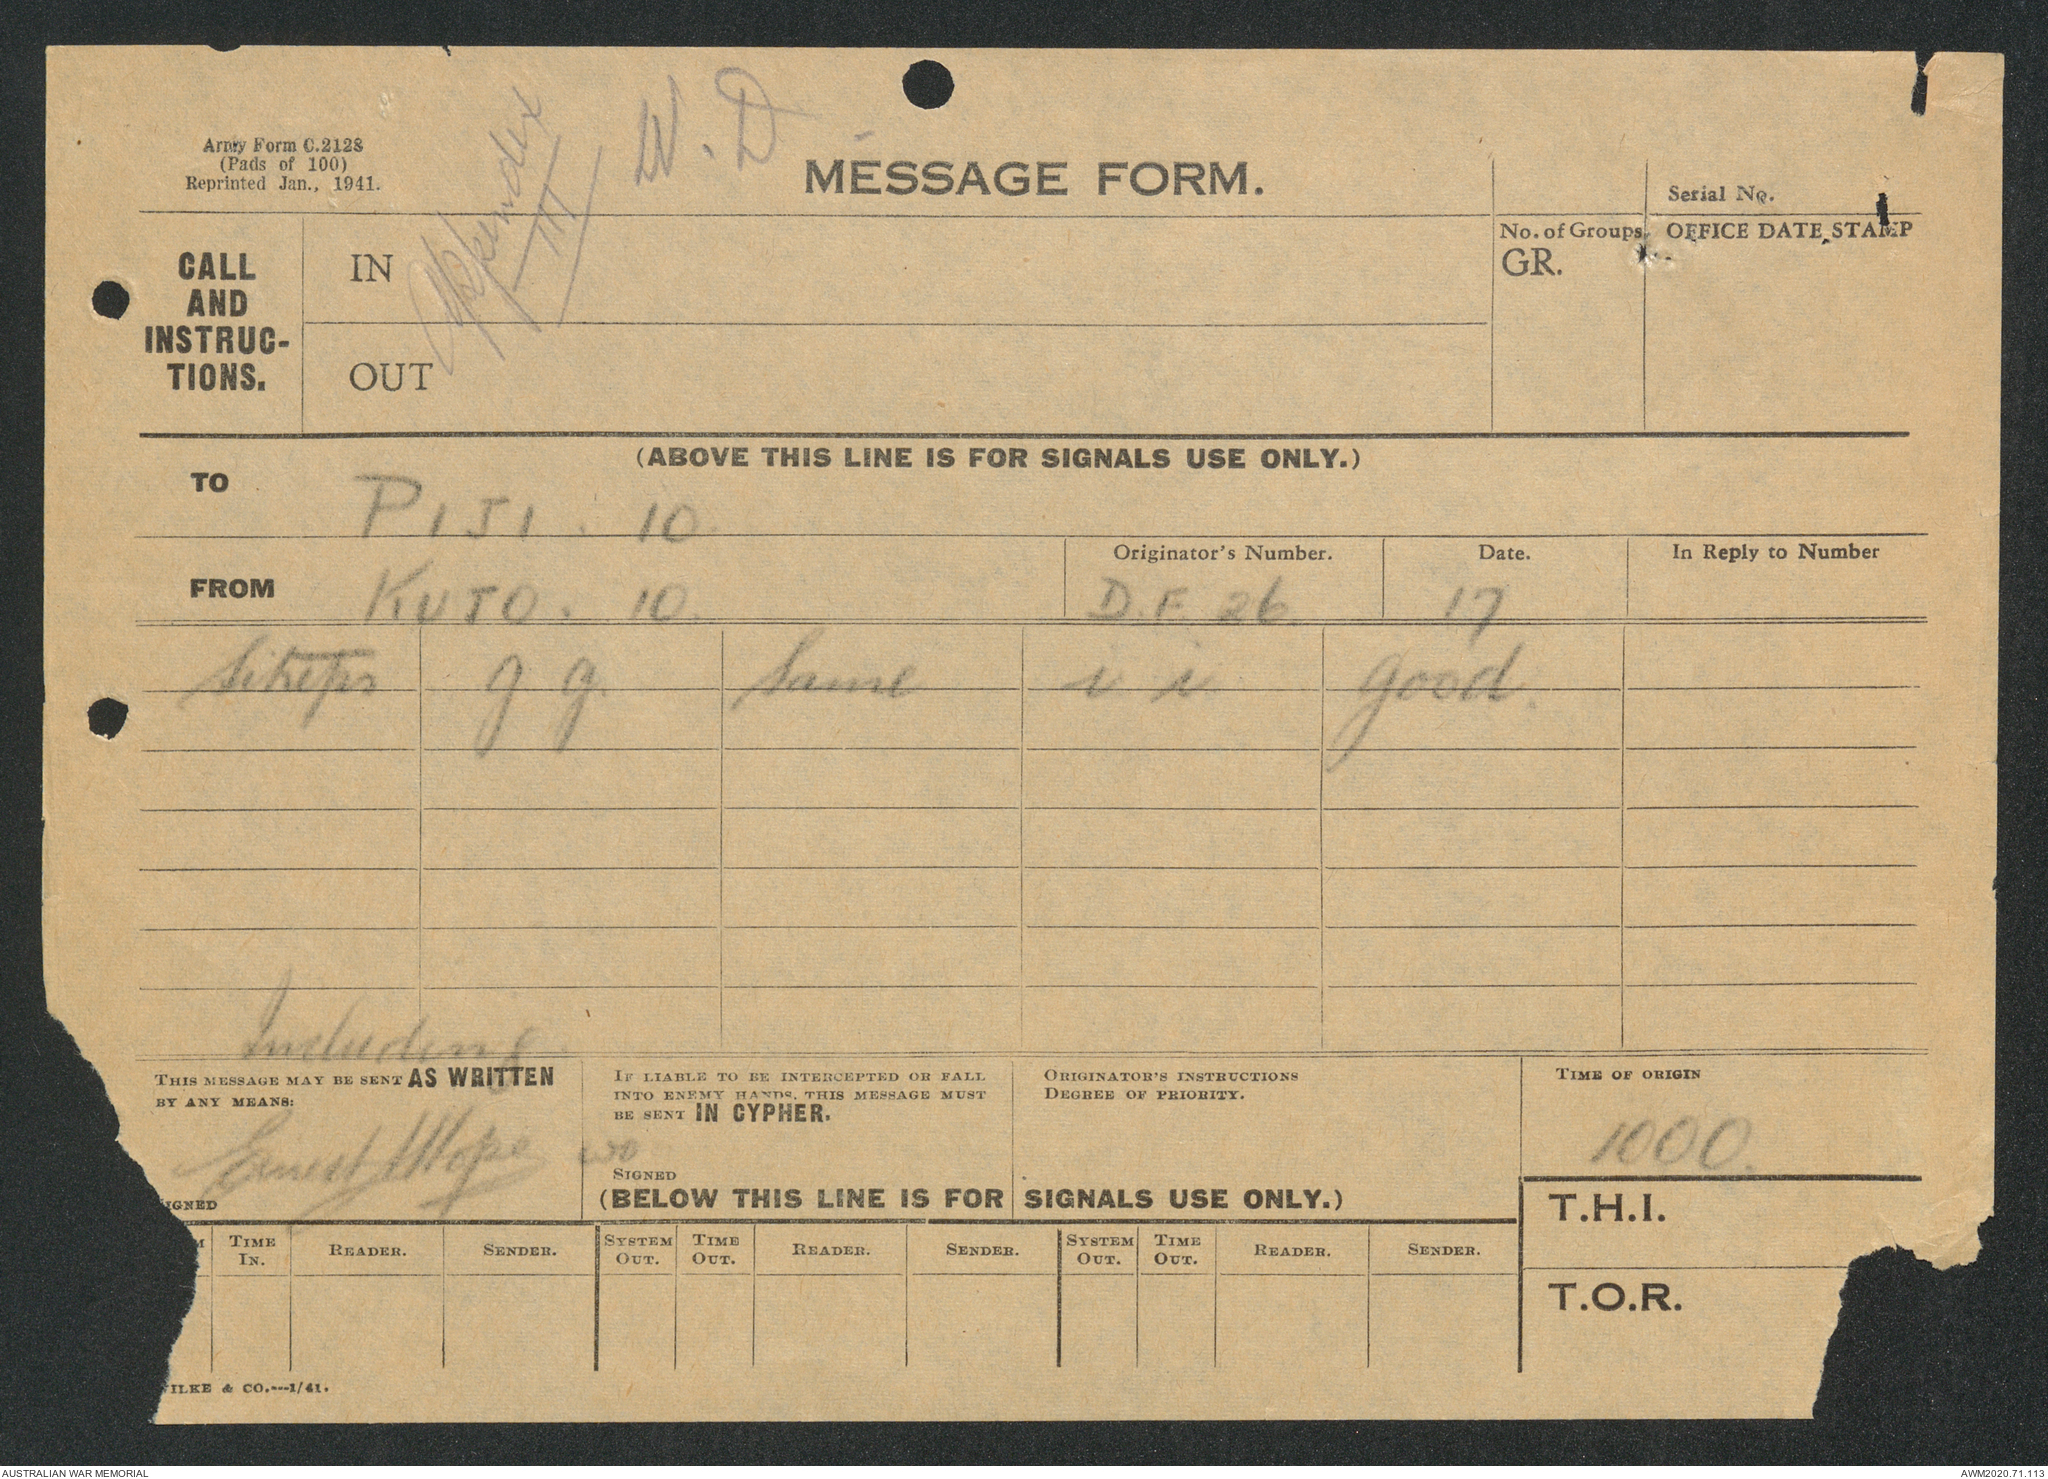 Army Form C.2128
(Pads of 100)
Reprinted Jan., 1941.
Appendix
III
W.D
MESSAGE FORM.
Serial No.
CALL
AND
INSTRUC-
TIONS.
IN
OUT
No. of Groups.
GR.
OFFICE DATE STAMP
(ABOVE THIS LINE IS FOR SIGNALS USE ONLY.)
TO PIJI. 10.
FROM KUJO. 10.
Originator's Number.
D.F. 26.
Date.
17
In Reply to Number
Sitreps gg. Same i i good.
Including
THIS MESSAGE MAY BE SENT AS WRITTEN
BY ANY MEANS:
Ernest Hope wo
SIGNED
IF LIABLE TO BE INTERCEPTED OR FALL
INTO ENEMY HANDS, THIS MESSAGE MUST
BE SENT IN CYPHER.
SIGNED
ORIGINATOR'S INSTRUCTIONS
DEGREE OF PRIORITY.
TIME OF ORIGIN
1000.
(BELOW THIS LINE IS FOR SIGNALS USE ONLY.)
T.H.I.
T.O.R.
M TIME IN. READER. SENDER. SYSTEM OUT. TIME OUT. READER. SENDER. SYSTEM OUT. TIME OUT. READER. SENDER.
ILKE & CO.---1/41.
AUSTRALIAN WAR MEMORIAL
AWM2020.71.113